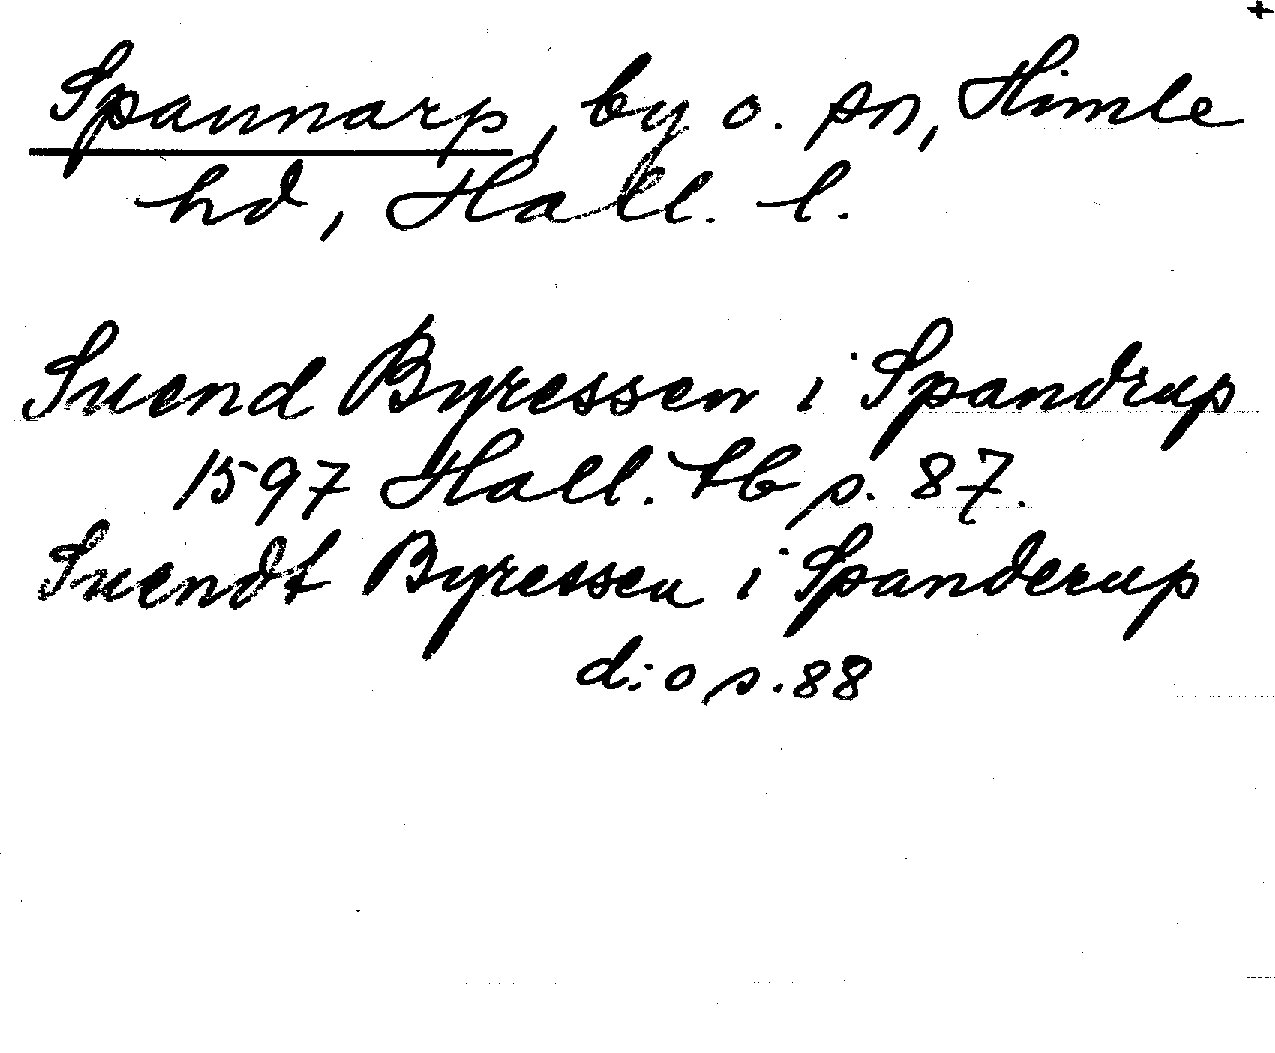 +
Spannarp, by o. sn, Himle
hd, Hall. l.
Svend Byressen i Spandrup
1597 Hall. tb s. 87.
Svendt Byressen i Spanderup
d:o s. 88